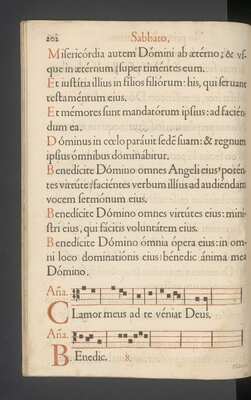 202 Sabbato,
Misericórdia autem Dómini ab ætérno, & vs-
que in ætérnum super timéntes eum.
Et iustítia illius in fílios filiórum: his, qui seruant
testaméntum eius.
Et mémores sunt mandatórum ipsíus: ad facién-
dum ea.
Dóminus in cœlo paráuit sedẽ suam: & regnum
ipsíus ómnibus dominábitur.
Benedícite Dómino omnes Angeli eius: potén-
tes virtúte: faciéntes verbum illíus ad audiendam
vocem sermónum eius.
Benedícite Dómino omnes virtútes eius: mini-
stri eius, qui fácitis voluntátem eius.
Benedícite Dómino ómnia ópera eius: in om-
ni loco dominatiónis eius: bénedic ánima mea
Dómino.
Aña.
Clamor meus ad te véniat Deus.
Aña.
Benedic. 8.